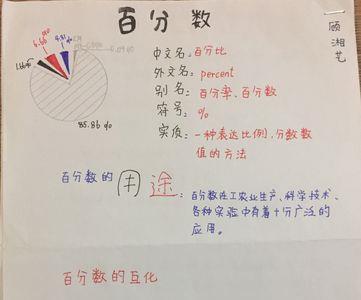 百分数
顾湘艺
中文名：百分比
外文名：percent
别名：百分率、百分数
符号：%
实质：一种表达比例，分数数
值的方法
85.86%
百分数的用途：百分数在工农业生产、科学技术、
各种实验中有着十分广泛的
应用。
百分数的互化